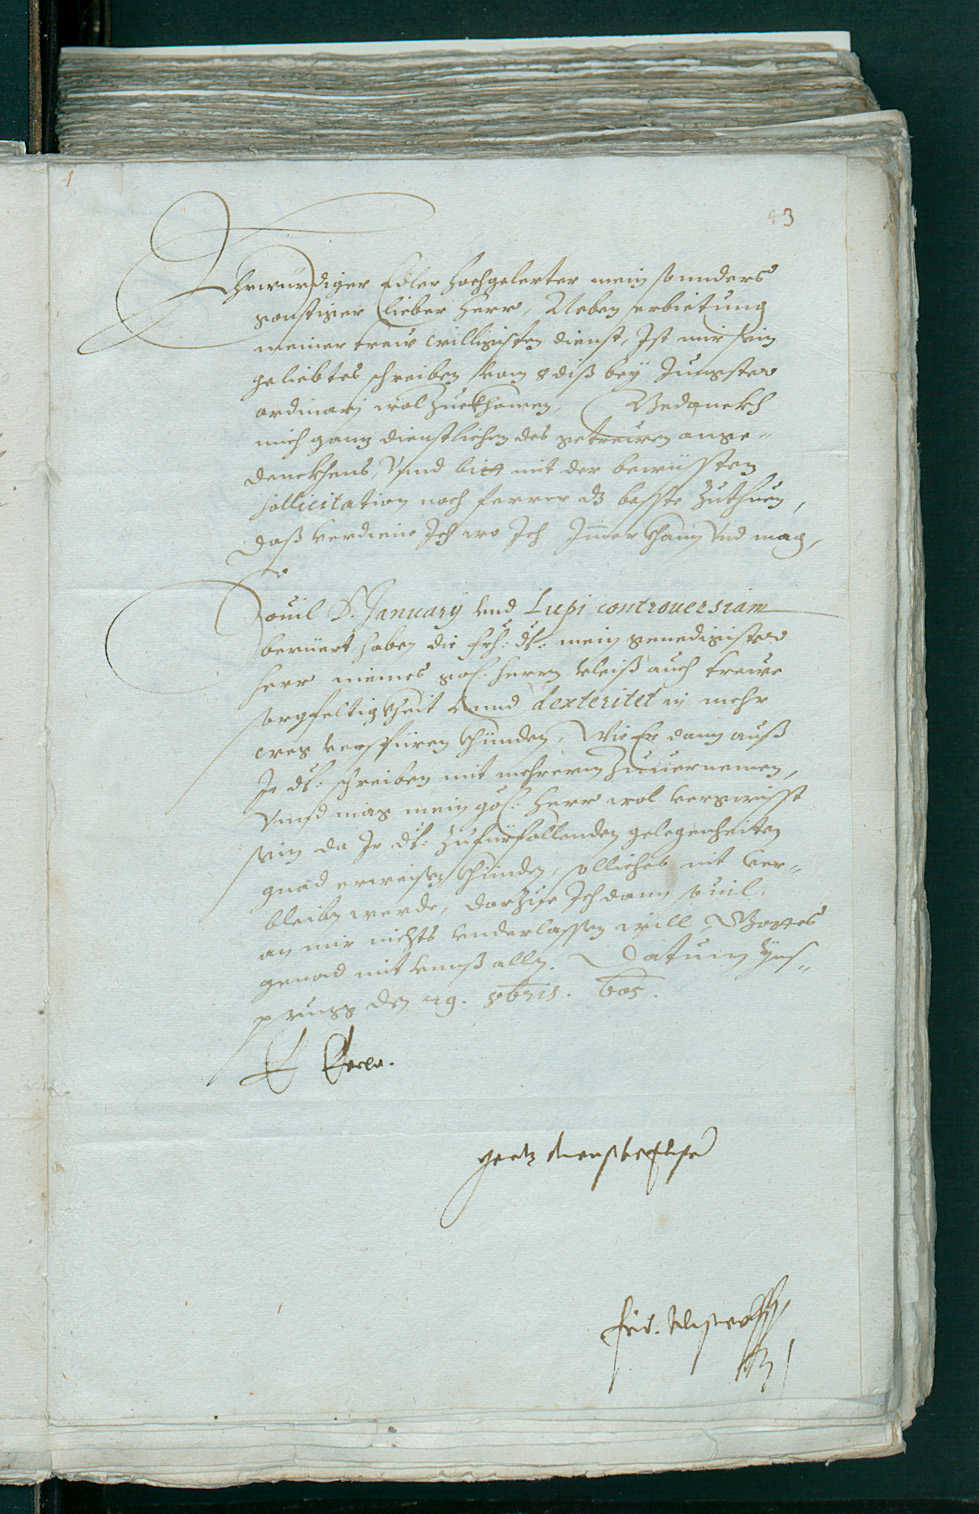 53
Ehrwürdiger Edler hochgelerter mein sonnders
gonstiger lieber Herr, Neben erbietung
meiner treuw willigisten dienst, Ist mir sein
geliebtes schreiben vom 8 diß bey Jungster
ordinarj wol zuekhomen, Bedanckh
mich ganz dienstlichen des getrewen ange-
denckhens, Vnnd bitt mit der bewüsten
sollicitation noch ferrer dz besste zuthuen,
Daß verdiene Ich wo Ich Jmer khann Vnd mag,
Souil D. Januarij vnd Lupi controuersiam
berüert haben die Frh: dt: mein genedigister
Herr meines gol. Herrn vleiß auch trewe
sorgfeltigkheit Vnnd dexteritet in mehr
weg verspüren khünden, Wie Er dann auß
Ir dt: schreiben mit mehrerm zuuernemen,
Vnnd mag mein gol: Herr wol vergwisst
sein da Ir dt: zufürfallenden gelegenheiten
gnad erweisen khünden, solliches nit ver-
bleiben werde, Darzue Ich dann souil
an mir nichts vnderlassen will, Gottes
genad mit vnnß alln. Datum Yns-
prugg den 19. 8bris. 605.
E Erw.
ganz dienstbeflißner